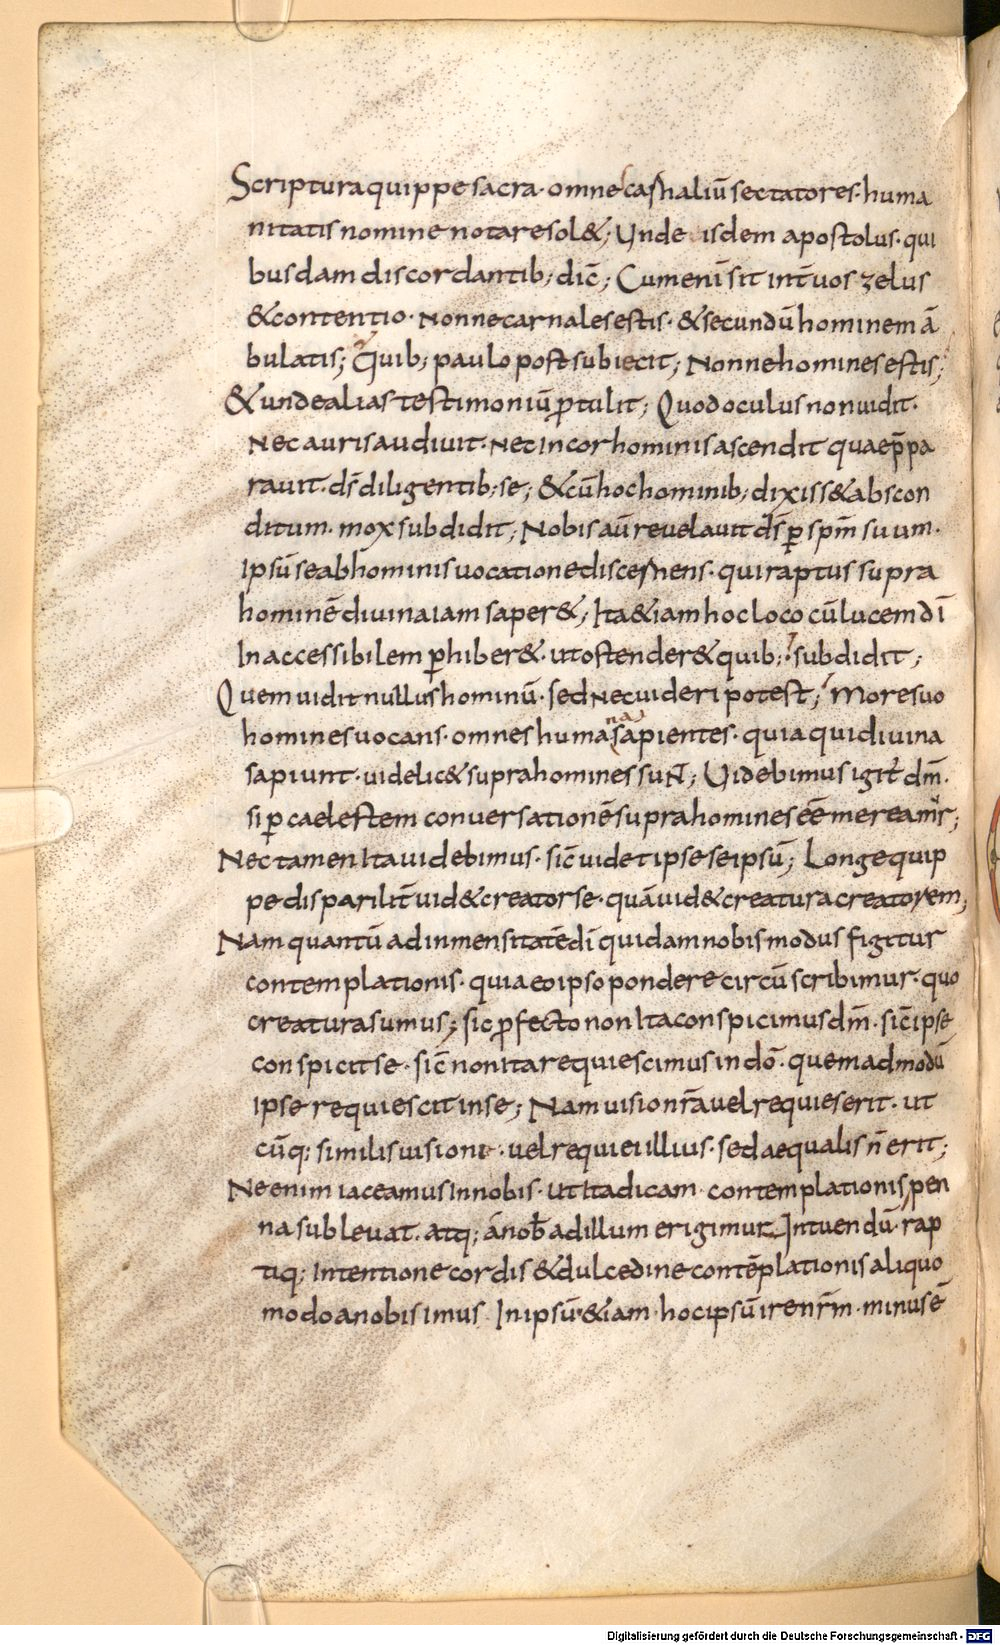 Scriptura quippe sacra· omne carnaliū sectatores· huma
nitatis nomine notare sol&; Unde isdem apostolus· qui
busdam discordantib; dic̄; Cum enī sit int̄ uos zelus
& contentio· Nonne carnales estis· & secundū hominem ā
bulatis; Quib; paulo post subiecit; Nonne homines estis;
& unde alias testimoniū ꝓtulit; Quod oculus non uidit·
Nec auris audiuit· Nec In cor hominis ascendit quae p̄pa
rauit d̄s diligentib; se; & cū hoc hominib; dixiss& abscon
ditum· mox subdidit; Nobis aū reuelauit d̄s ꝑ sp̄m suum·
Ipsū se ab hominis uocatione discernens· qui raptus supra
hominē diuina iam saper&; Ita &iam hoc loco cū lucem dī
Inaccessibilem ꝑhiber&· ut ostender& quib;· subdidit;
Quem uidit nullus hominū· sed Nec uideri potest; More suo
homines uocans· omnes humana sapientes· quia qui diuina
sapiunt· uidelic& supra homines suN̄; Uidebimus igit̄ dm̄·
si ꝑ caelestem conuersationē supra homines eē meream̄r;
Nec tamen Ita uidebimus· sic̄ uidet ipse se ipsū; Longe quip
pe dispariliī uid& creator se· quā uid& creatura creatorem;
Nam quantū ad inmensitatē dī quidam nobis modus figitur
contemplationis· quia eo ipso pondere circūscribimur· quo
creatura sumus; sic̄ ꝓfecto non Ita conspicimus dm̄· sic̄ ipse
conspicit se· sic̄ non ita requiescimus in dō· quemadmodū
Ipse requiescit in se; Nam uisio nr̄a uel requies erit· ut
cūq; similis uisioni· uel requiei illius· sed aequalis n̄ erit;
Ne enim iaceamus In nobis· ut Ita dicam· contemplationis pen
na subleuat· atq; á nob̄ ad illum erigimur Intuendū· rap
tiq; Intentione cordis & dulcedine contēplationis aliquo
modo a nobis imus In ipsū· &iam· hoc ipsū ire nr̄m· minus ē
Digitalisierung gefördert durch die Deutsche Forschungsgemeinschaft - DFG